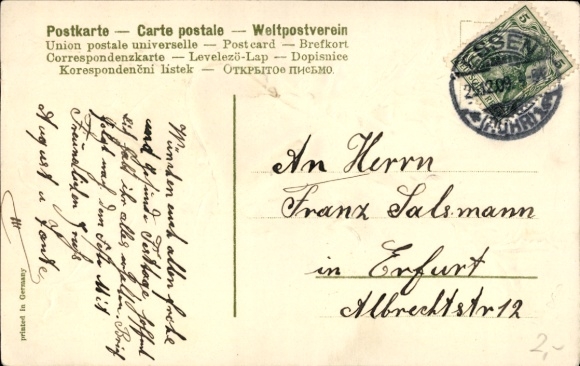 Postkarte — Carte postale — Weltpostverein
Union postale universelle — Postcard — Brefkort
Correspondenzkarte — Levelező-Lap — Dopisnice
Korespondenční lístek — Открытое письмо.
5
5
ESSEN
(RUHR)
An Herrn
Franz Salsmann
in Erfurt
Albrechtstr 12
Wünschen euch allen frohe
und gesunde Festtage hoffend
ihr alles erhalten. Brief
folgt nach dem Feste Mit
Freundlichen Gruß
August u Tante
printed in Germany
2,-